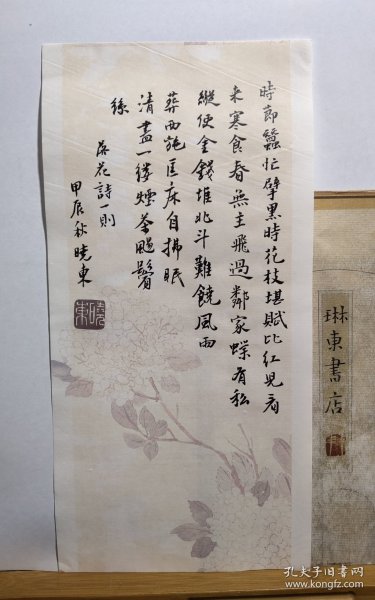 時節蠶忙擘黑時花枝堪賦比紅兒看
來寒食春無主飛過鄰家蝶有私
縱使金錢堆北斗難饒風雨
葬西施匡床自拂眠
清晝一縷煙茶颺鬢
絲
落花詩一則
甲辰秋曉東
曉東
琳東書店
孔夫子旧书网
www.kongfz.com